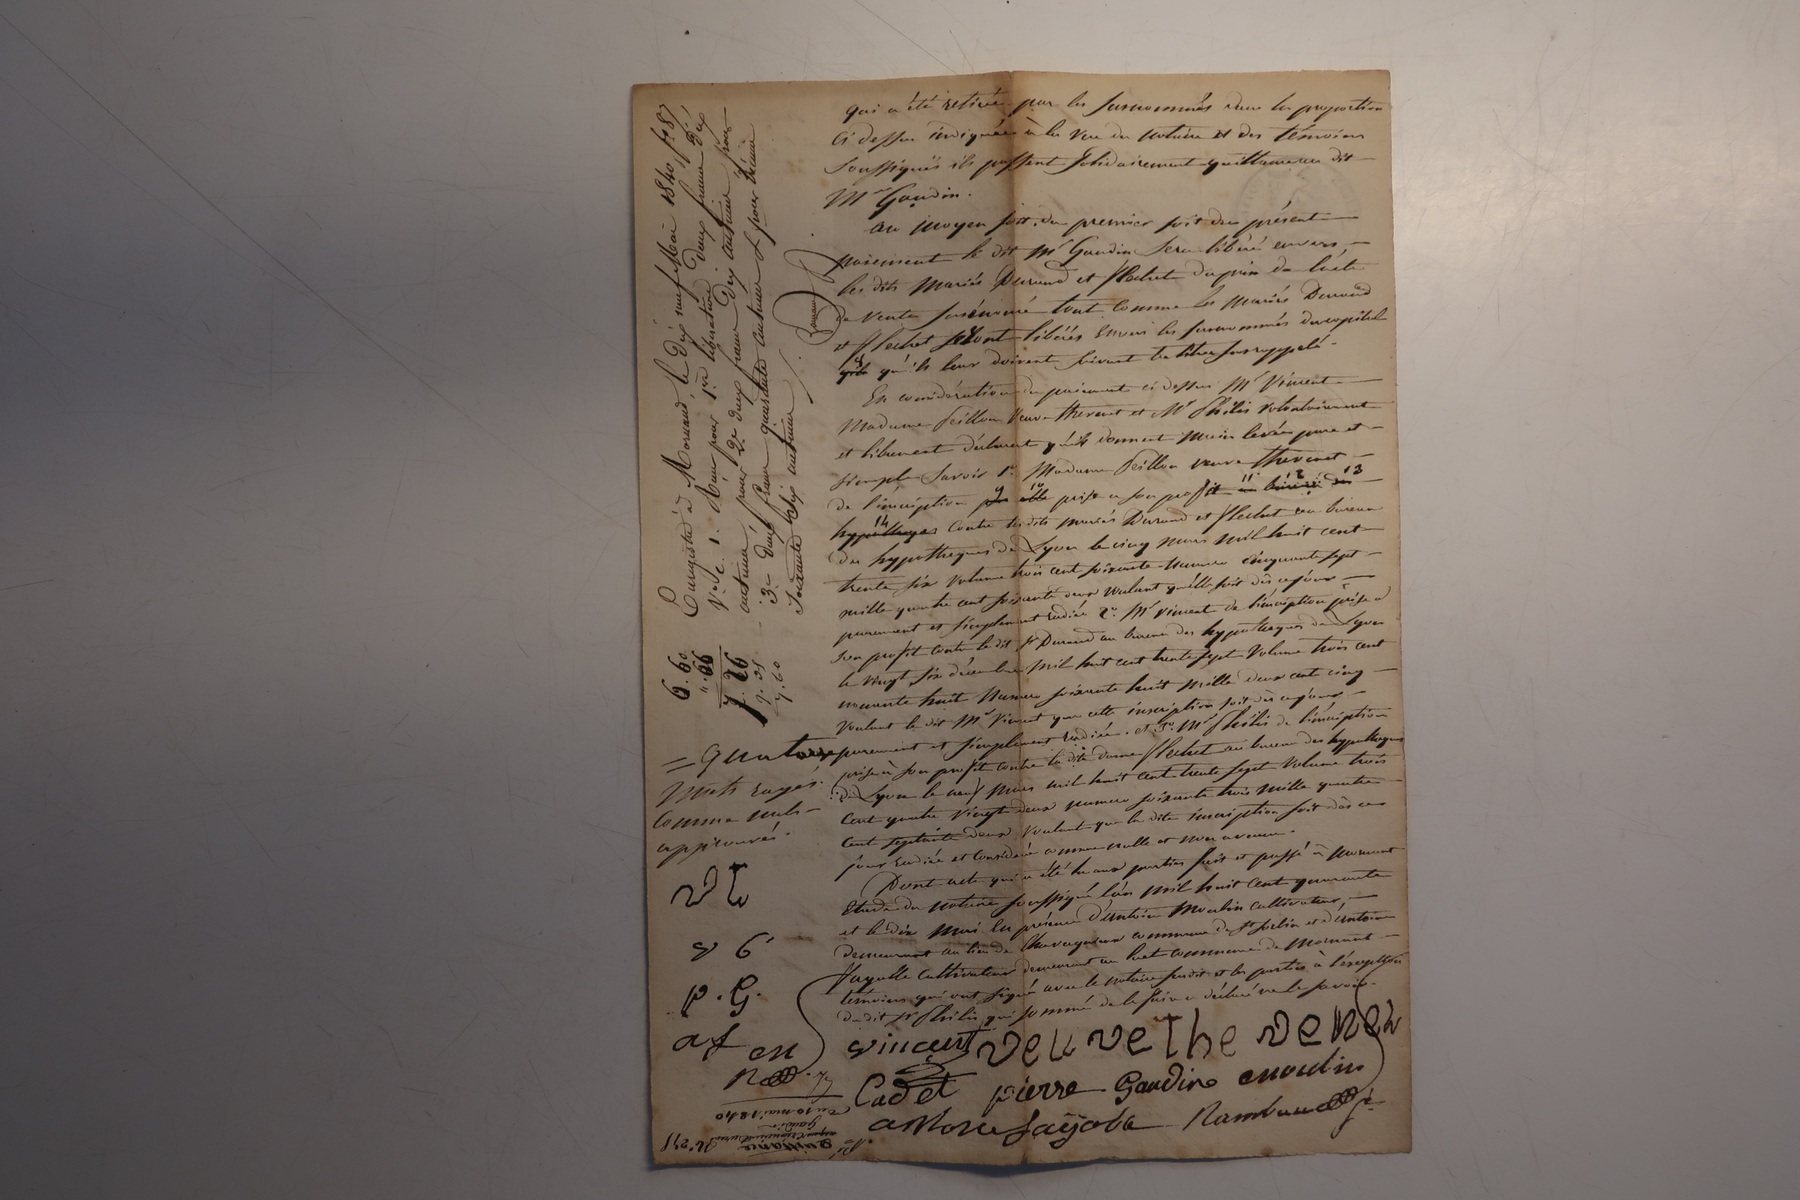 qui a été retirée par les susnommés dans la proportion
ci dessus indiquée à la vue du notaire et des témoins
soussignés ils passent solidairement quittance au dit
Mr Gaudin.
Au moyen soit du premier soit du présent
paiement le dit Mr Gaudin sera libéré envers
les dits mariés Durand et Flechet du prix de l'acte
de vente susénoncé tout comme les mariés Durand
et Flechet seront libérés envers les susnommés du capital
qu'ils leur doivent suivant les titres susrappelés.
En considération du paiement ci dessus Mr Vincent
Madame Peillon veuve thevenet et Mr Philis volontairement
et librement déclarent qu'ils donnent main levée pure et
simple savoir 1o Madame Peillon veuve thevenet
de l'inscription prise a son profit
hypothèques contre les dits mariés Durand et Flechet au bureau
des hypothèques de Lyon le cinq mars mil huit cent
trente six volume trois cent soixante numero cinquante sept
mille quatre cent soixante deux voulant qu'elle soit dès ce jour
purement et simplement radiée 2o Mr Vincent de l'inscription prise à
son profit contre le dit sr Durand au bureau des hypothèques de Lyon
le vingt six décembre mil huit cent trente sept volume trois cent
numero soixante huit mille deux cent cinq
voulant le dit Mr Vincent que cette inscription soit dès ce jour
purement et simplement radiée. et 3o Mr Philis de l'inscription
prise à son profit contre la dite dame Flechet au bureau des hypothèques
de Lyon le neuf mars mil huit cent trente sept volume trois
cent quatre vingt deux numero soixante trois mille quatre
cent septante deux voulant que la dite inscription soit dès ce
jour radiée et considérée comme nulle et non avenue.
Dont acte qui a été lu aux parties fait et passé à Mornant
Etude du notaire soussigné l'an mil huit cent quarante
et le dix mai En présence d'antoine Moulin cultivateur
demeurant au lieu de commune de St Sorlin et d'antoine
Fayolle cultivateur demeurant au commune de Mornant
témoins qui ont signé avec le notaire susdit et les parties à l'exception
du dit sr Philis qui sommé de le faire a déclaré ne le savoir.
vincent veuve thevenet
Cadet pierre Gaudin moulin
antoine fayole Rambaud
Enregistré à Mornant, le dix neuf Mai 1840 fo 87
Vo C. 1. Reçu pour 1re libération deux francs dix
centimes, pour 2e deux francs dix centimes pour
3e deux francs quarante centimes et pour dixième
soixante six centimes
6. 60
". 66
7. 26
= quatorze
mots rayés
comme nuls
approuvés.
v t
v c
p. G.
a f m
R
Quittance
Gaudin
Du 10 mai 1840